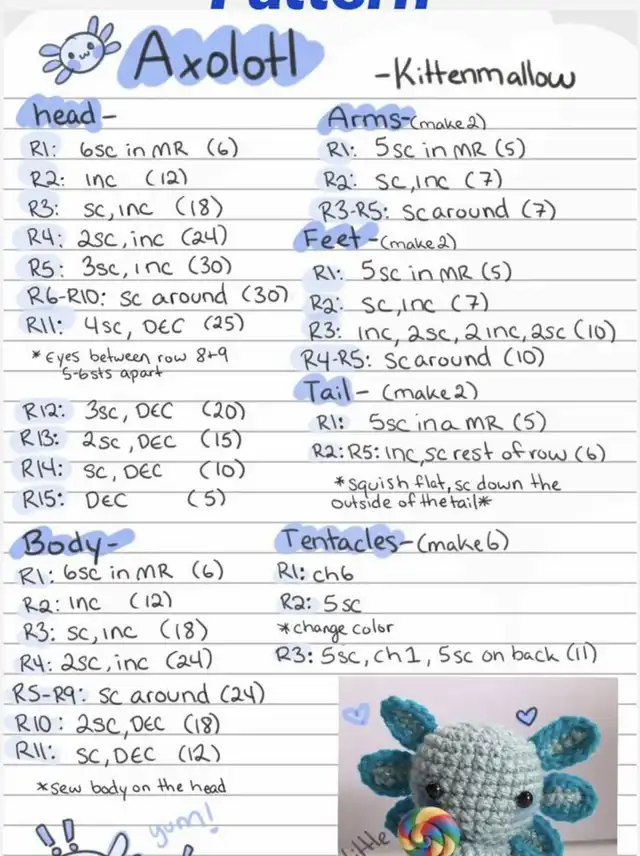 Pattern
Axolotl
-Kittenmallow
head-
R1: 6sc in MR (6)
R2: inc (12)
R3: sc, inc (18)
R4: 2sc, inc (24)
R5: 3sc, inc (30)
R6-R10: sc around (30)
R11: 4sc, DEC (25)
*Eyes between row 8+9
5-6sts apart
R12: 3sc, DEC (20)
R13: 2sc, DEC (15)
R14: sc, DEC (10)
R15: DEC (5)
Arms-(make2)
R1: 5sc in MR (5)
R2: sc, inc (7)
R3-R5: sc around (7)
Feet-(make2)
R1: 5sc in MR (5)
R2: sc, inc (7)
R3: inc, 2sc, 2inc, 2sc (10)
R4-R5: sc around (10)
Tail- (make2)
R1: 5sc in a MR (5)
R2:R5: inc, sc rest of row (6)
*squish flat, sc down the
outside of the tail*
Body-
R1: 6sc in MR (6)
R2: inc (12)
R3: sc, inc (18)
R4: 2sc, inc (24)
R5-R9: sc around (24)
R10: 2sc, DEC (18)
R11: sc, DEC (12)
*sew body on the head
Tentacles-(make6)
R1: ch6
R2: 5sc
*change color
R3: 5sc, ch1, 5sc on back (11)
yum!
little